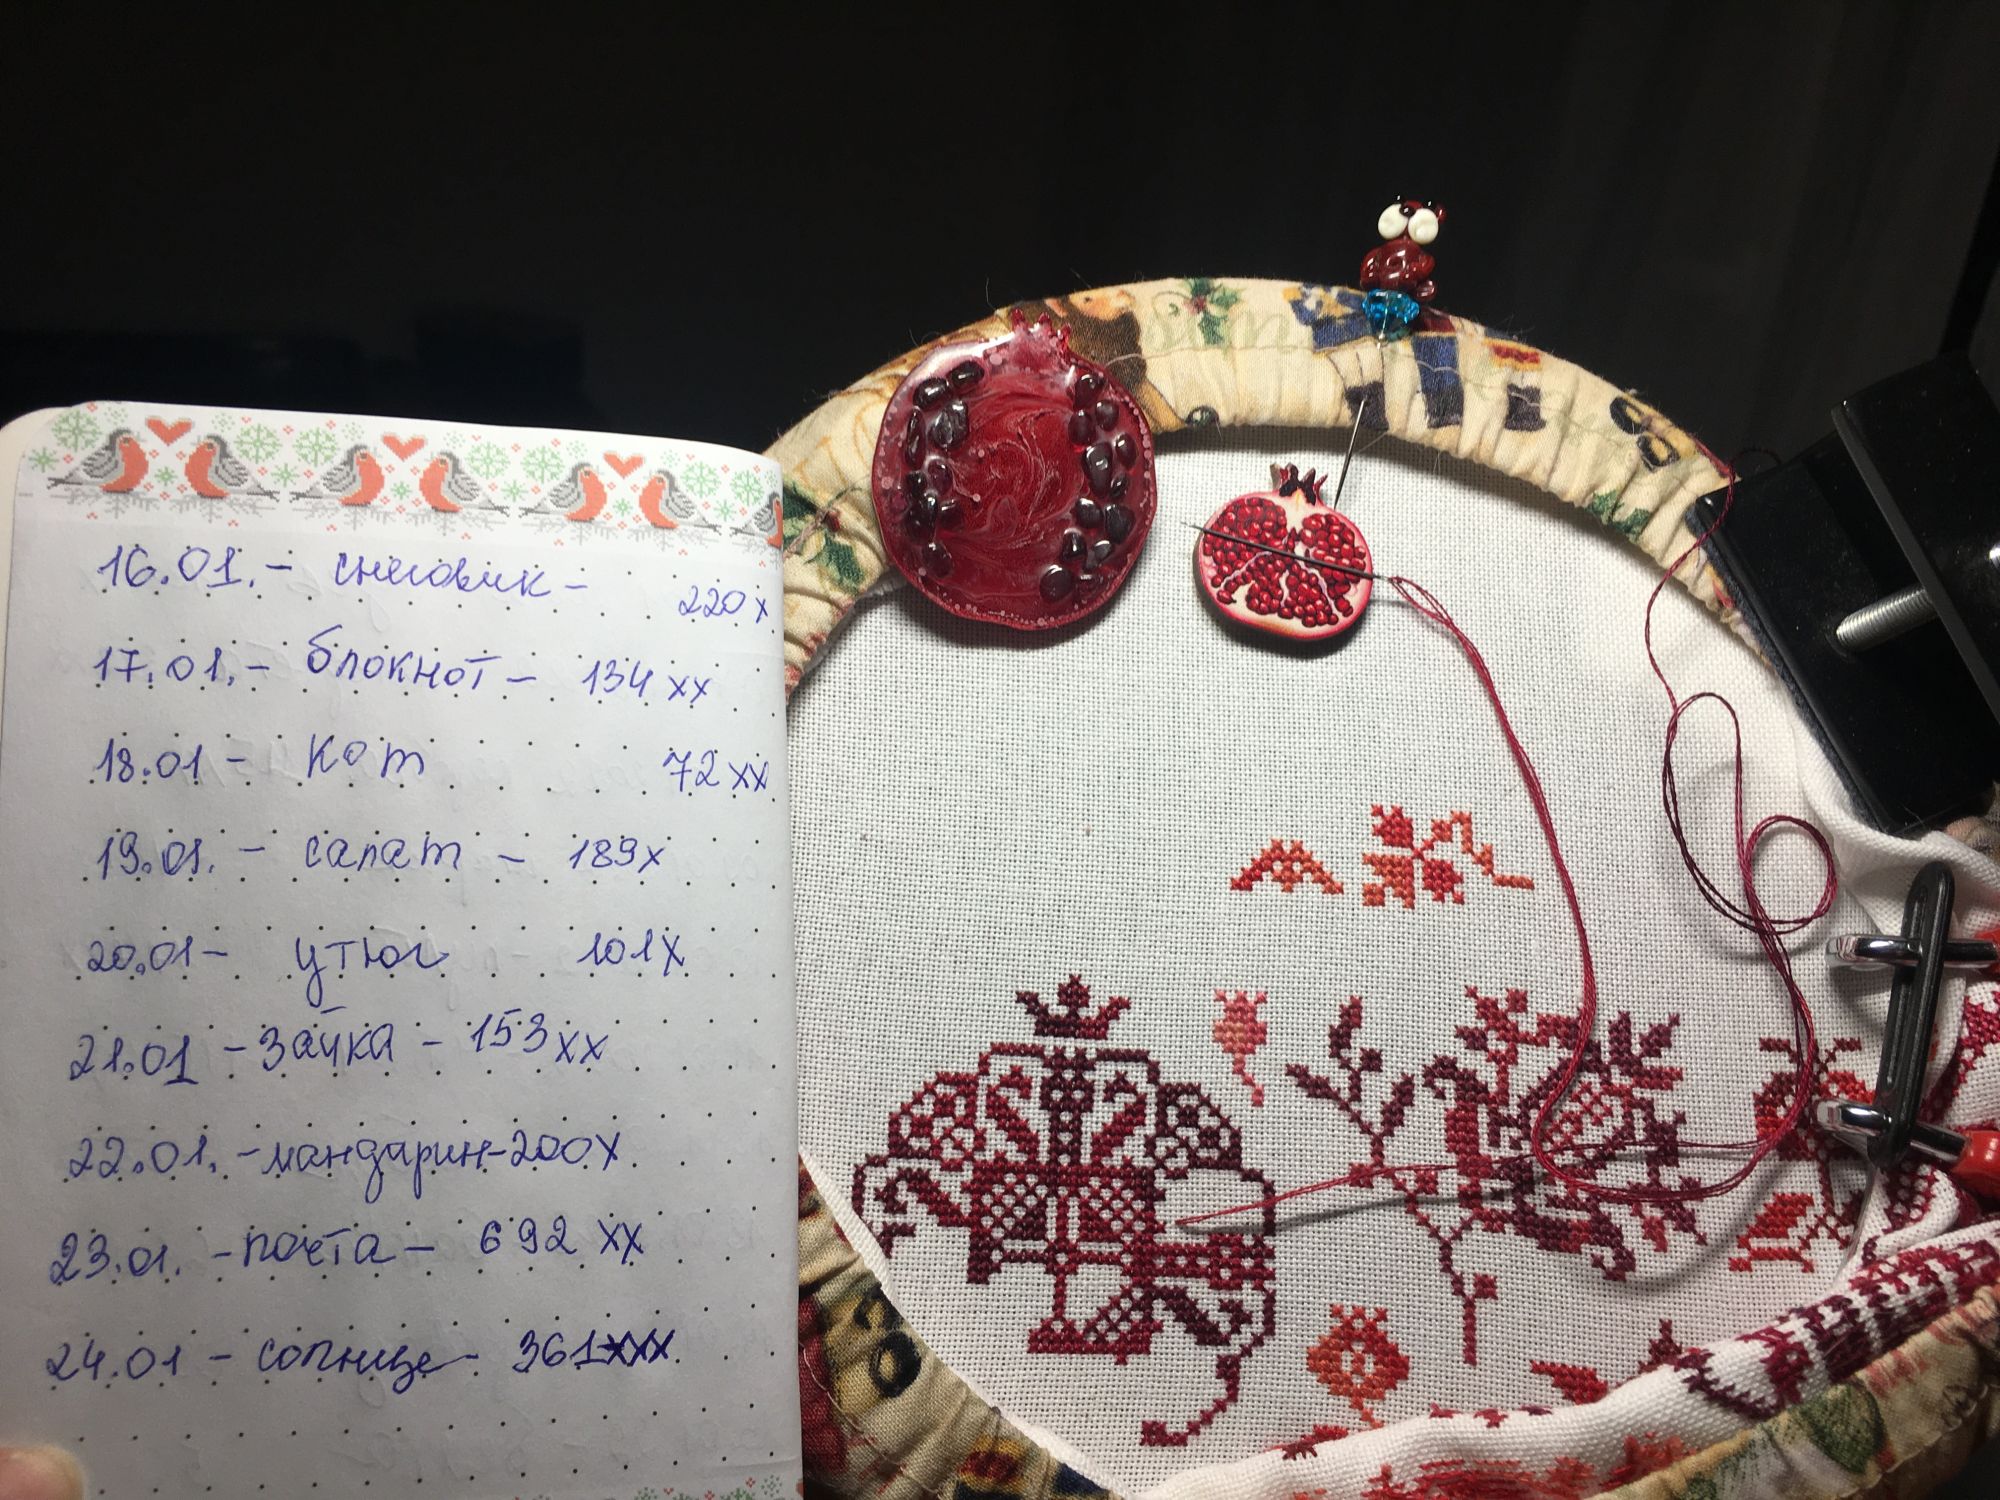 16.01.- снеговик - 220 x
17.01.- блокнот - 134 xx
18.01 - кот 72 xx
19.01. - салат - 189x
20.01 - утюг 101x
21.01 - Зайка - 153xx
22.01. - мандарин - 200x
23.01. - почта - 692 xx
24.01 - солнце - 361xxx